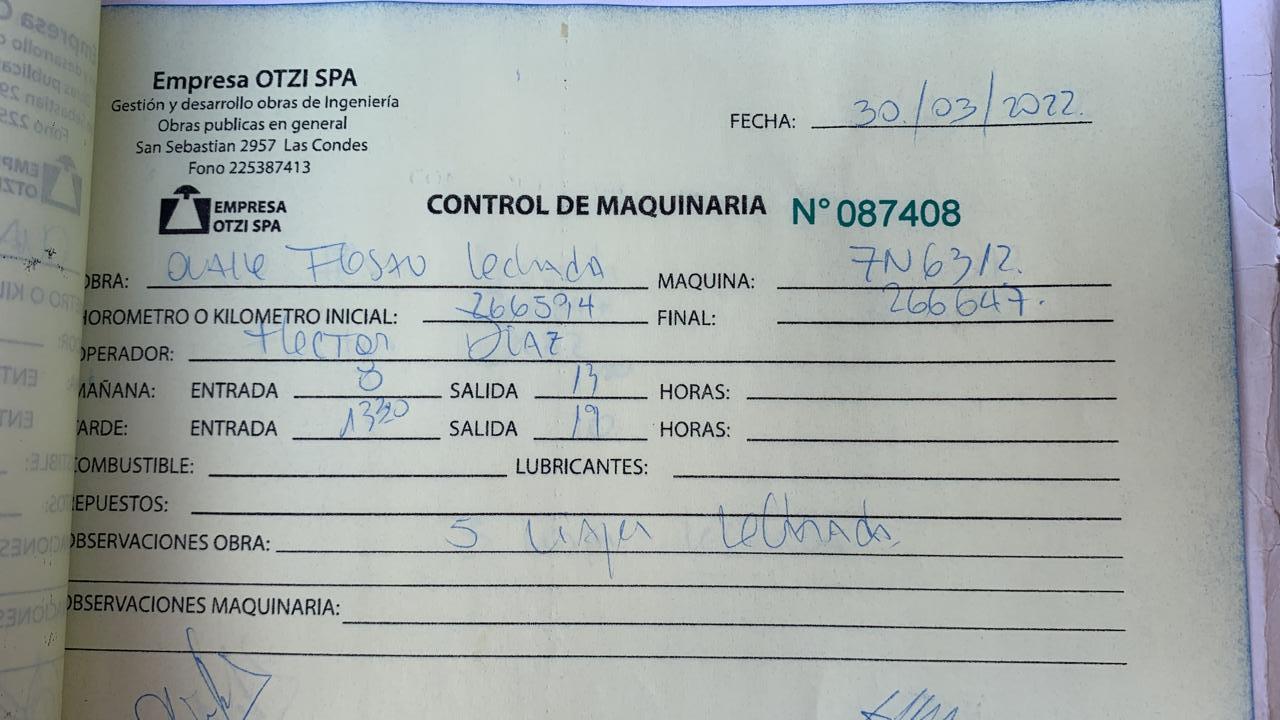 Empresa OTZI SPA
Gestión y desarrollo obras de Ingeniería
Obras publicas en general
San Sebastian 2957 Las Condes
Fono 225387413
FECHA: 30/03/2022.
EMPRESA
OTZI SPA
CONTROL DE MAQUINARIA N° 087408
OBRA: Lechada MAQUINA: 7N6312.
HOROMETRO O KILOMETRO INICIAL: 266594 FINAL: 266647.
OPERADOR: Hector DIAZ
MAÑANA: ENTRADA 8 SALIDA 13 HORAS:
TARDE: ENTRADA 1330 SALIDA 19 HORAS:
COMBUSTIBLE: LUBRICANTES:
REPUESTOS:
OBSERVACIONES OBRA: 5 viajes Lechada.
OBSERVACIONES MAQUINARIA: